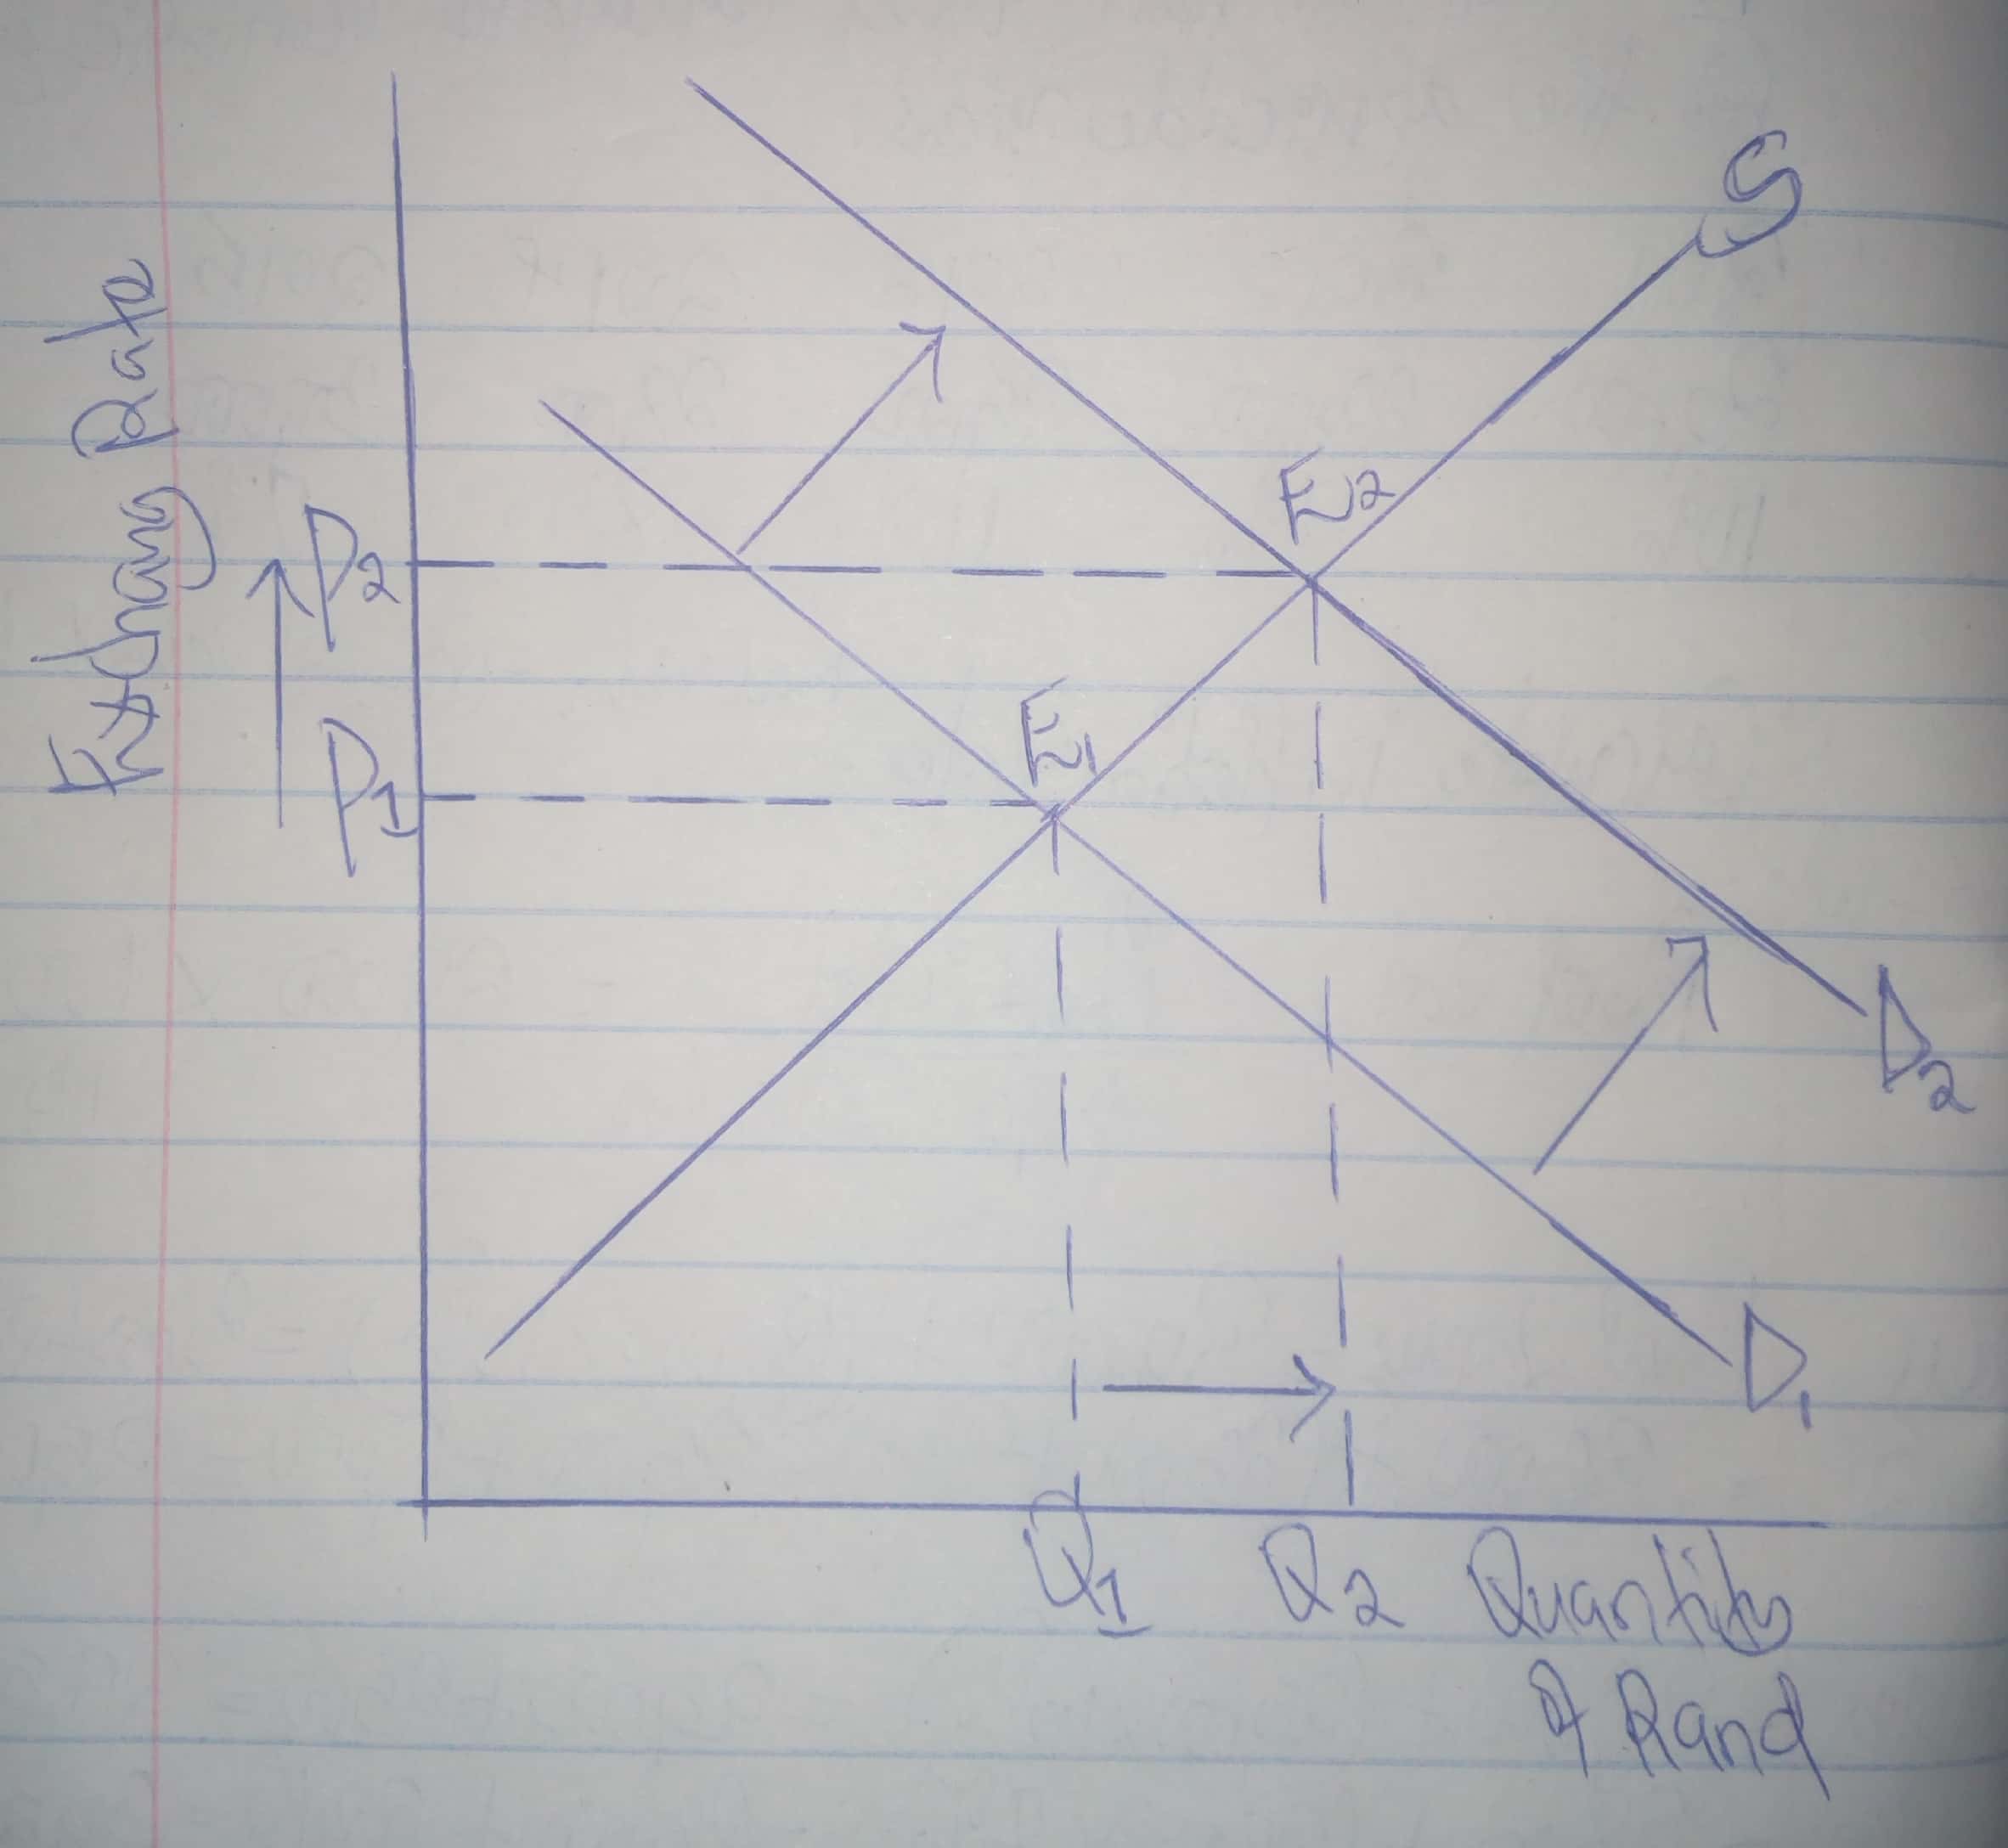 S
Exchang Rate
P2
E2
P1
E1
D2
D1
Q1
Q2
Quantity
of Rand